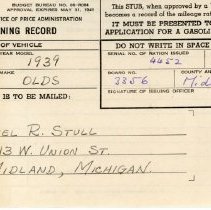 BUDGET BUREAU NO. 08-R084
APPROVAL EXPIRES MAY 31, 1945
OFFICE OF PRICE ADMINISTRATION
NING RECORD
OF VEHICLE
YEAR MODEL
1939
MAKE
OLDS
IS TO BE MAILED:
EL R. STULL
13 W. UNION ST.
MIDLAND, MICHIGAN.
This STUB, when approved by a
becomes a record of the mileage rat
IT MUST BE PRESENTED TO
APPLICATION FOR A GASOLI
DO NOT WRITE IN SPACE
SERIAL NOS. OF RATION ISSUED
4452
BOARD NO.
3356
COUNTY AND
Midl
SIGNATURE OF ISSUING OFFICER